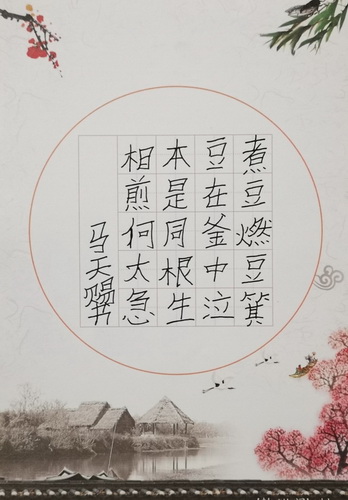 煮豆燃豆箕
豆在釜中泣
本是同根生
相煎何太急
马天赐书